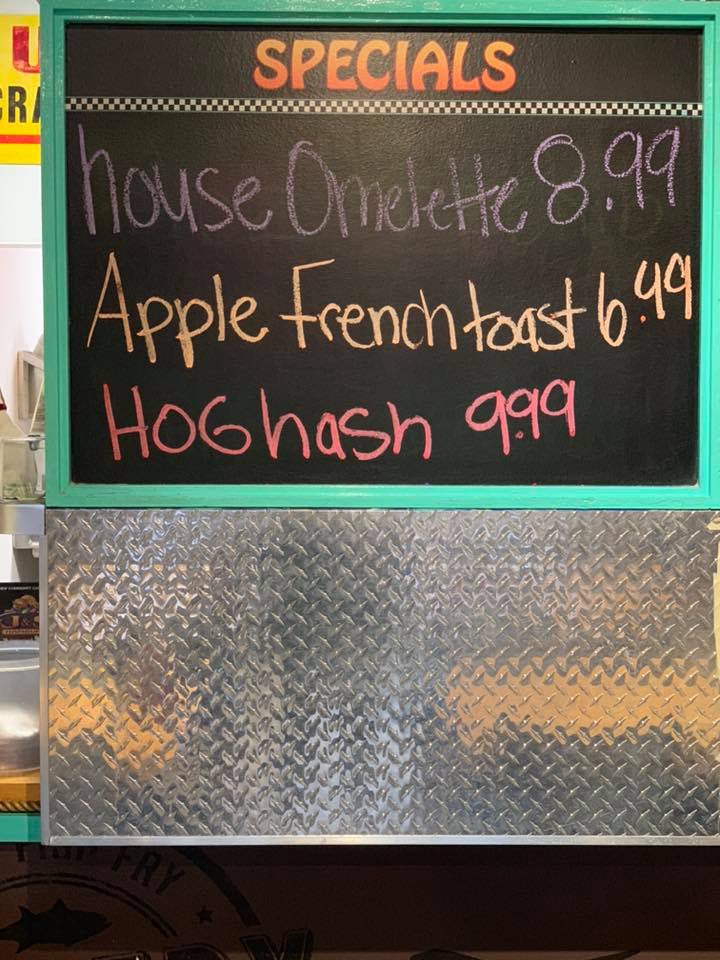 SPECIALS
house Omelette 8.99
Apple French toast 6.99
HOG hash 9.99
FRY